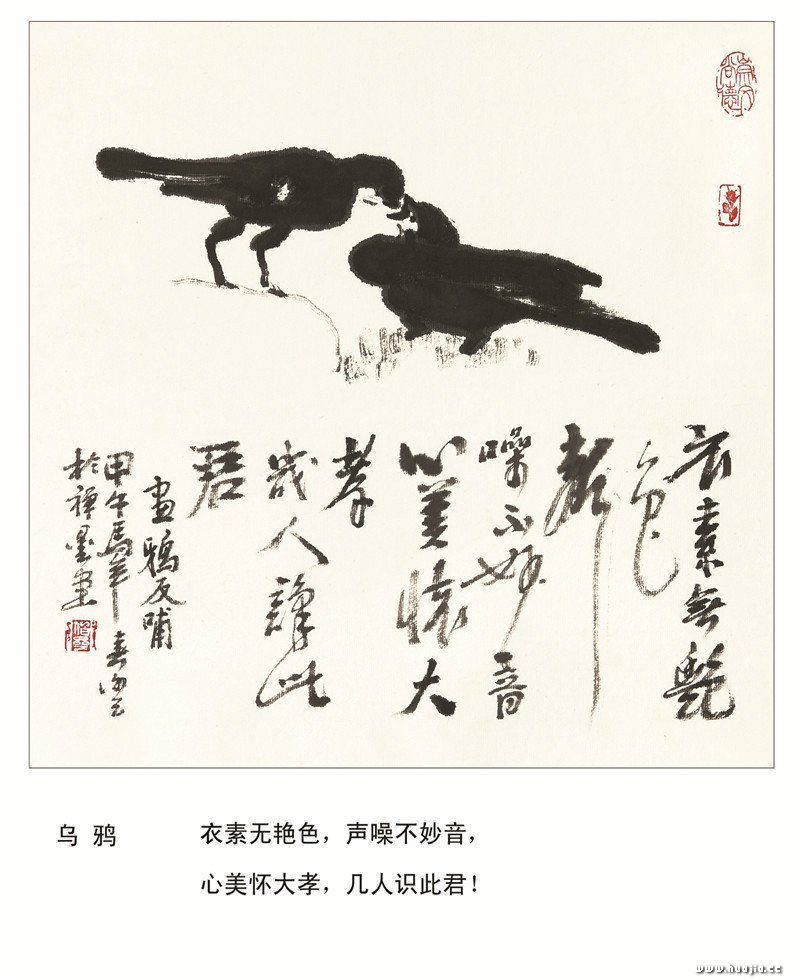 衣素無艷
色
聲
噪不妙音
心美懷大
孝
幾人識此
君
畫鴉反哺
甲午馬年春堂
於禪墨堂
乌 鸦
衣素无艳色，声噪不妙音，
心美怀大孝，几人识此君！
www.huajia.cc